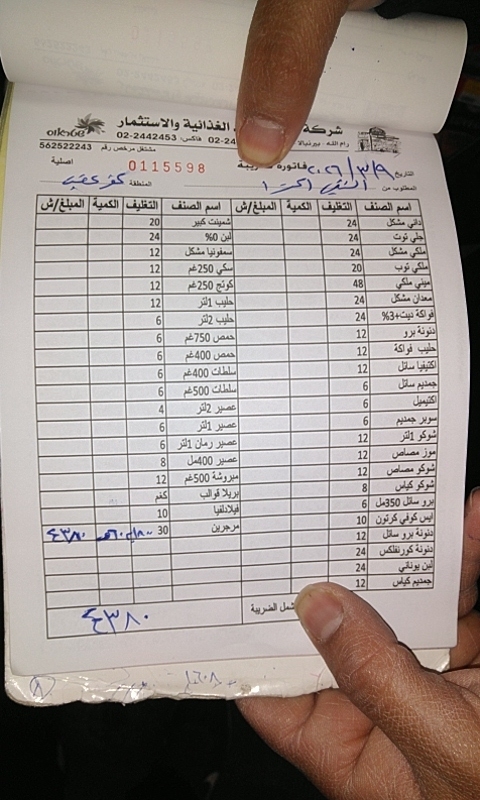 شركة الغذائية والاستثمار
رام الله - بيرنبالا 02-24 فاكس: 02-2442453
مشتغل مرخص رقم 562522243
التاريخ ٢٠٢٦/٣/٩ فاتورة 0115598 اصلية
المطلوب من المنطقة كفر عقب
اسم الصنف التغليف الكمية المبلغ/ش اسم الصنف التغليف الكمية المبلغ/ش
داني مشكل 24 شمينت كبير 20
جلي توت 24 لبن 0% 24
ملكي مشكل 24 سمفونيا مشكل 12
ملكي توب 20 سكي 250غم 12
ميني ملكي 48 كوتج 250غم 12
معدان مشكل 24 حليب 1لتر 12
فواكة ديت+3% 24 حليب 2لتر 6
دنونة برو 12 حمص 750غم 6
حليب فواكة 12 حمص 400غم 6
اكتيفيا سائل 12 سلطات 400غم 6
جمديم سائل 6 سلطات 500غم 6
اكتيميل 6 عصير 2لتر 4
سوبر جمديم 6 عصير 1لتر 6
شوكو 1لتر 12 عصير رمان 1لتر 6
موز مصاص 12 عصير 400مل 8
شوكو مصاص 12 مبروشة 500غم 12
شوكو كياس 8 بريلا قوالب كغم
برو سائل 350مل 6 فيلادلفيا 10
ايس كوفي كرتون 10 مرجرين 30 ٤٣٨٠
دنونة برو سائل 12
دنونة كورنفلكس 24
لبن يوناني 24
جمديم كياس 12
شمل الضريبة ٤٣٨٠